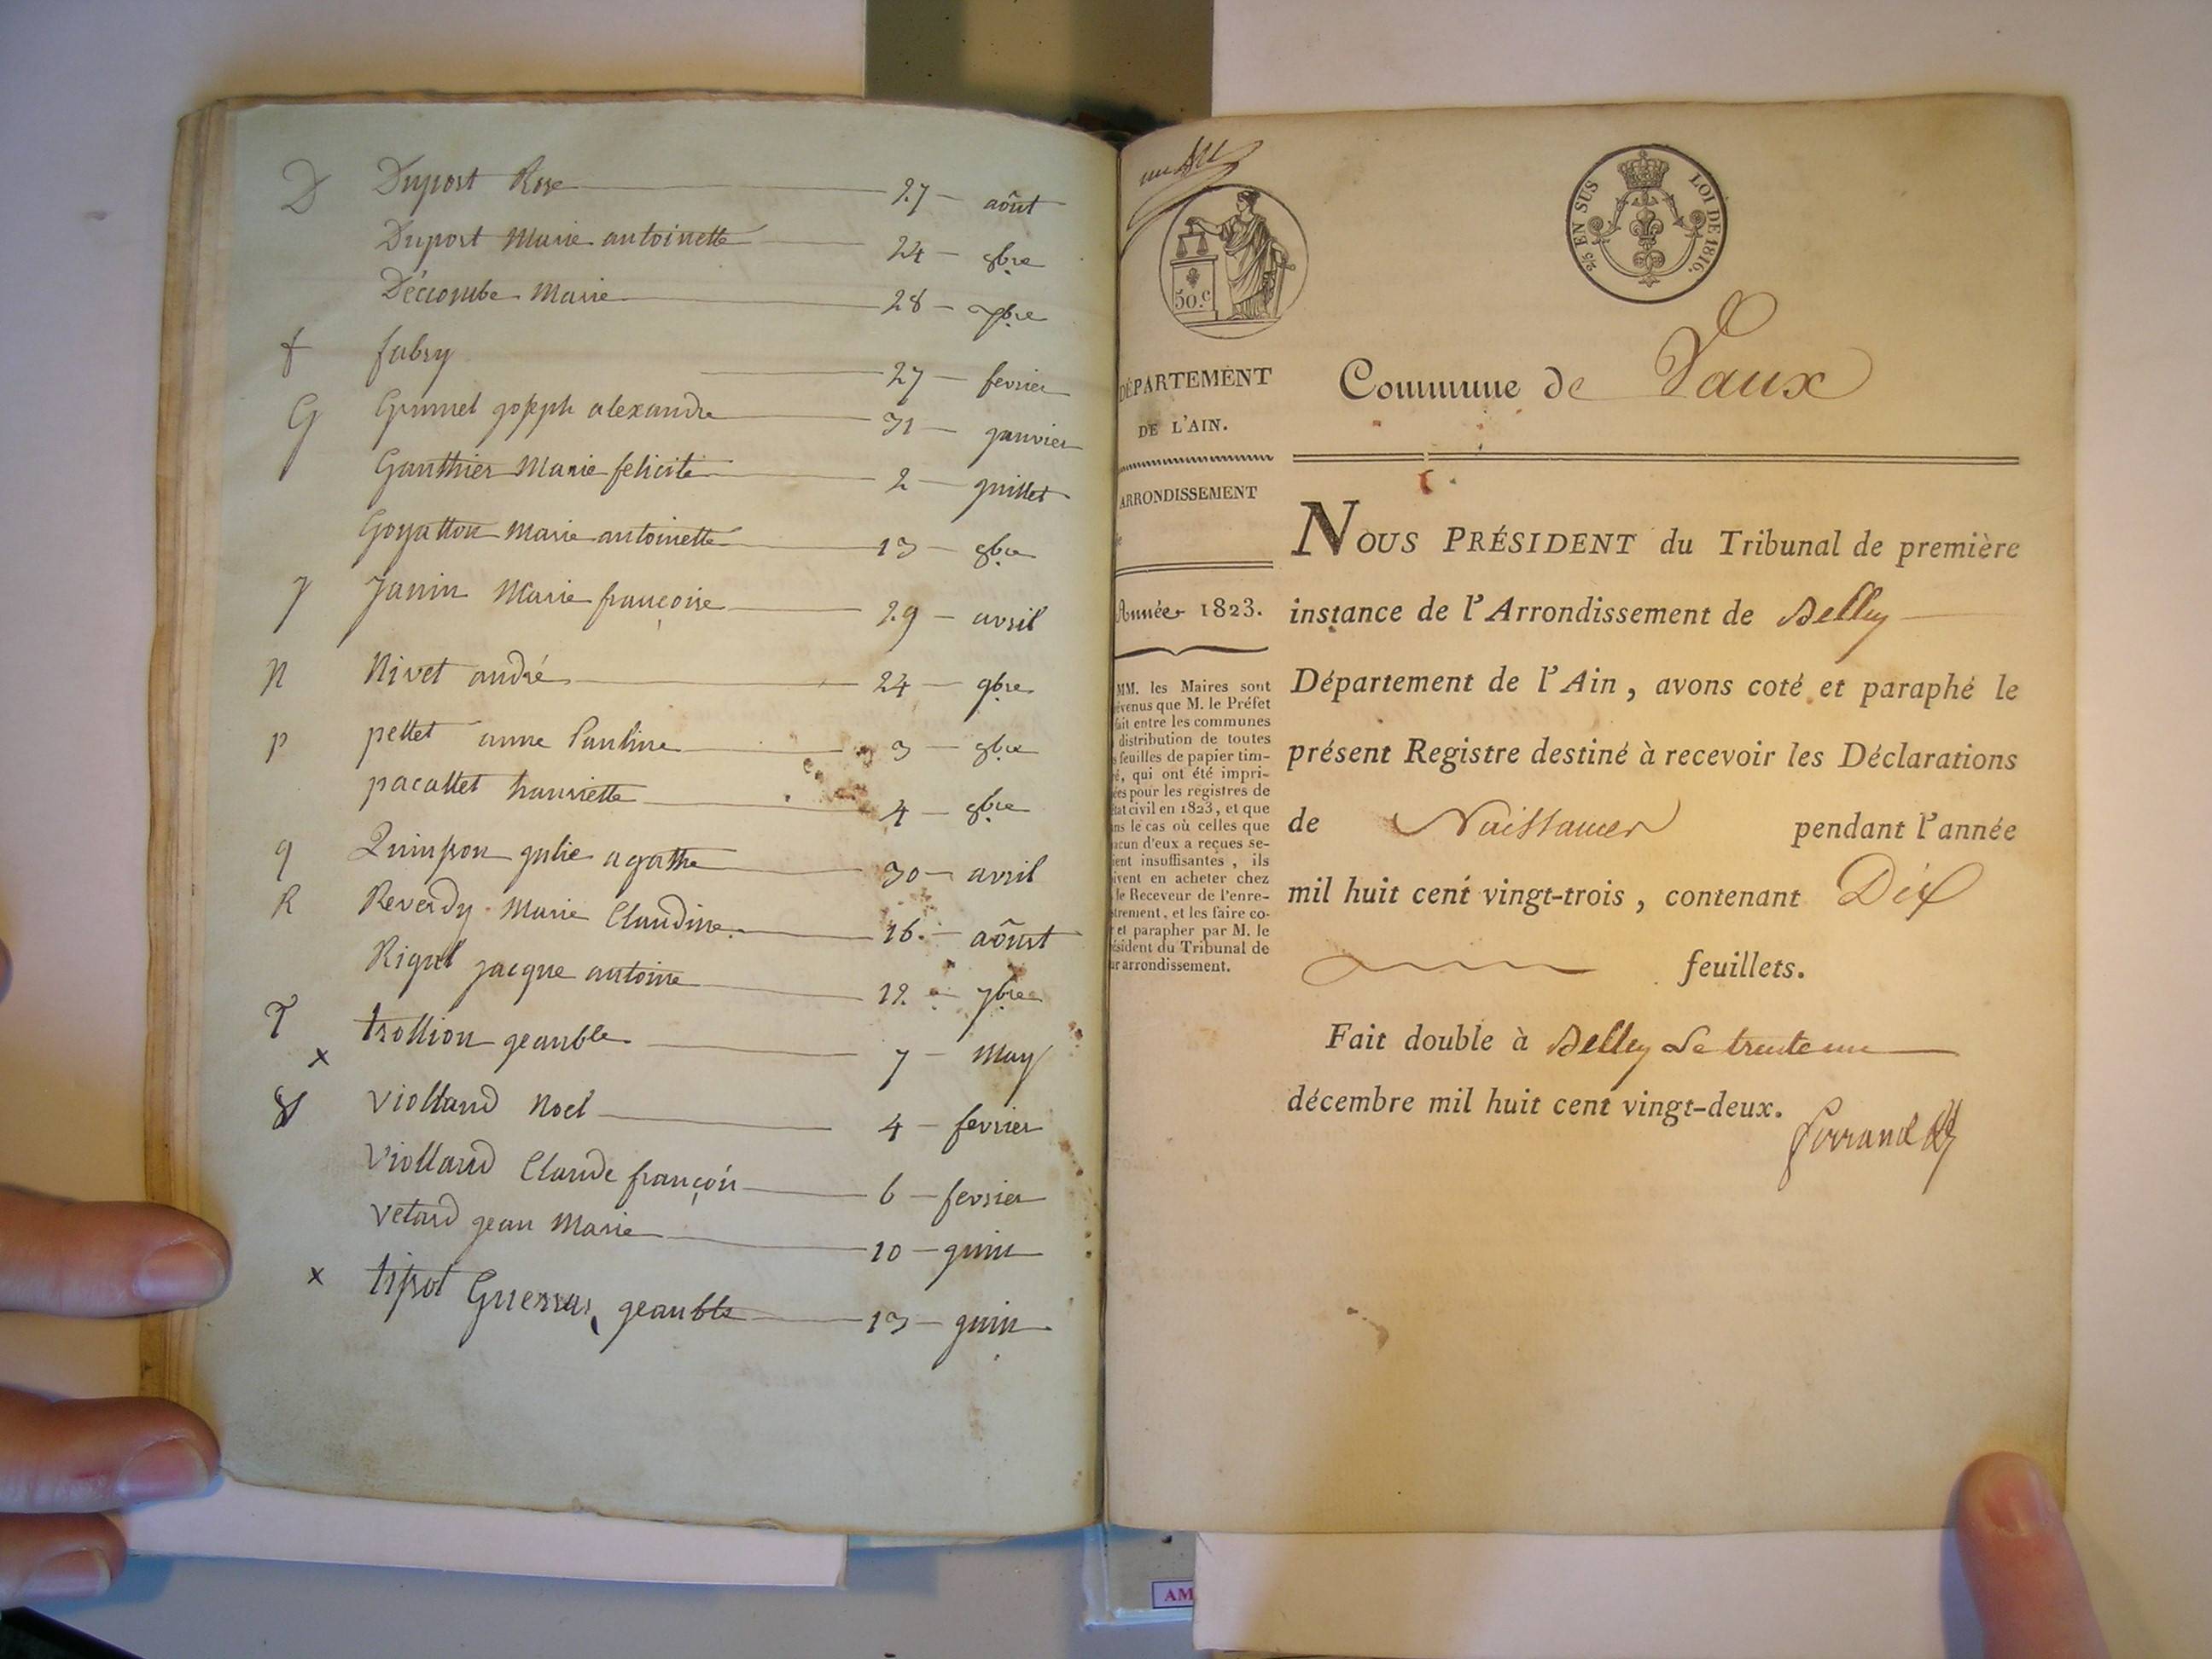 D Dupost Rose 27 - août
Dupost Marie antoinette 24 - 8bre
Décombe Marie 28 - 7bre
f fabry 27 - fevrier
G Grumel joseph alexandre 31 - janvier
Gauthier Marie felicité 2 - juillet
Goyatton Marie antoinette 13 - 8bre
J Janin Marie françoise 29 - avril
N Nivet andré 24 - 9bre
p pellet anne Pauline 3 - 8bre
pacallet hanriette 4 - 8bre
q Quinson julie agathe 30 - avril
R Reverdy Marie Claudine 16 - aôust
Rigul jacque antoine 12 - 7bre
T trollion jeanbte 7 - May
x
V Violland Noel 4 - fevrier
Violland Claude françois 6 - fevrier
Vetard jean Marie 10 - juin
x tissot jeanbte 13 - juin
2/5 EN SUS LOI DE 1816.
50.c
DÉPARTEMENT
DE L'AIN.
Commune de Vaux
ARRONDISSEMENT
Année 1823.
MM. les Maires sont
évenus que M. le Préfet
fait entre les communes
distribution de toutes
s feuilles de papier tim-
é, qui ont été impri-
ées pour les registres de
état civil en 1823, et que
ns le cas où celles que
acun d'eux a reçues se-
ient insuffisantes, ils
ivent en acheter chez
le Receveur de l'enre-
trement, et les faire co-
r et parapher par M. le
ésident du Tribunal de
ur arrondissement.
NOUS PRÉSIDENT du Tribunal de première
instance de l'Arrondissement de Belley
Département de l'Ain, avons coté et paraphé le
présent Registre destiné à recevoir les Déclarations
de Naissances pendant l'année
mil huit cent vingt-trois, contenant Dix
feuillets.
Fait double à Belley Le trente un
décembre mil huit cent vingt-deux.
AM